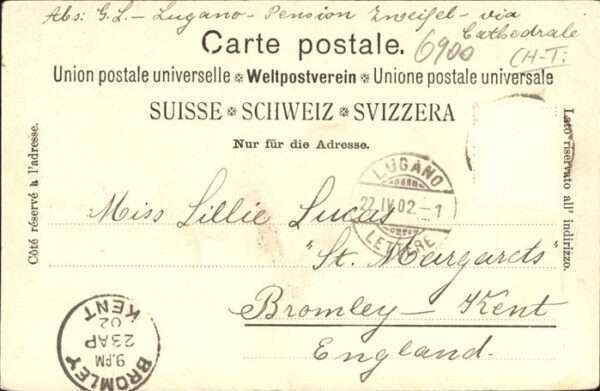 Abs: G.L. - Lugano - Pension Zweifel - via
Cathedrale
6900
(CH-T:
Carte postale.
Union postale universelle * Weltpostverein * Unione postale universale
SUISSE * SCHWEIZ * SVIZZERA
Nur für die Adresse.
Côté réservé à l'adresse.
Lato riservato all' indirizzo.
LUGANO
22.IV.02.-1
LETTERE
Miss Lillie Lucas
"St. Margarets"
Bromley - Kent
England.
BROMLEY
9.PM
23AP
02
KENT